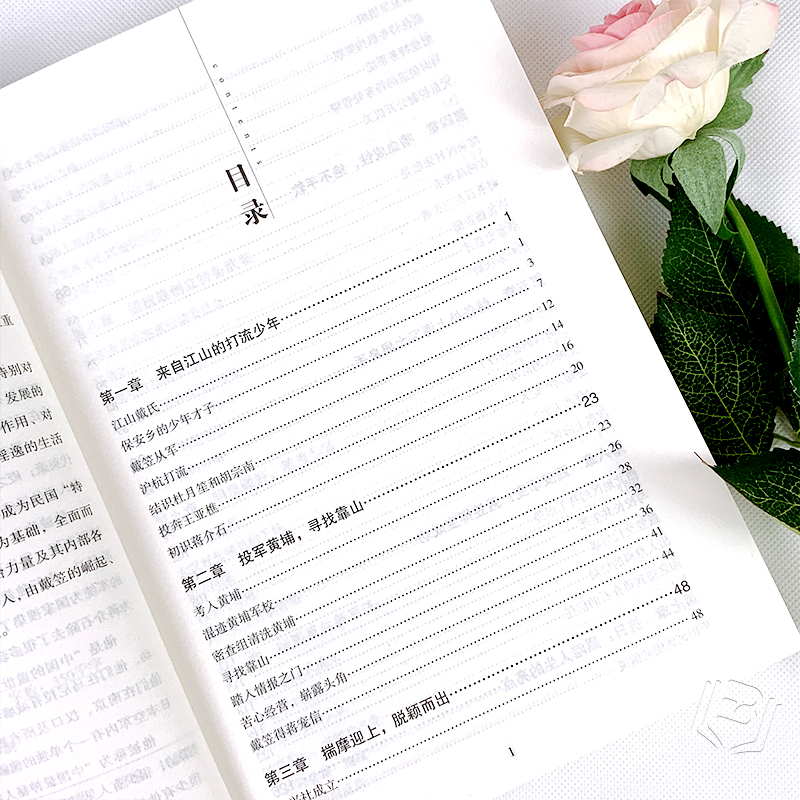 重
特别对
发展的
作用、对
淫逸的生活
成为民国“特
为基础，全面而
力量及其内部各
人，由戴笠的崛起、
contents
目录
第一章 来自江山的打流少年 1
江山戴氏 1
保安乡的少年才子 3
戴笠从军 7
沪杭打流 12
结识杜月笙和胡宗南 14
投奔王亚樵 16
初识蒋介石 20
第二章 投军黄埔，寻找靠山 23
考入黄埔 23
混迹黄埔军校 26
密查组清洗黄埔 28
寻找靠山 32
踏入情报之门 36
苦心经营，崭露头角 41
戴笠得蒋宠信 44
第三章 揣摩迎上，脱颖而出 48
兴社成立 48
1